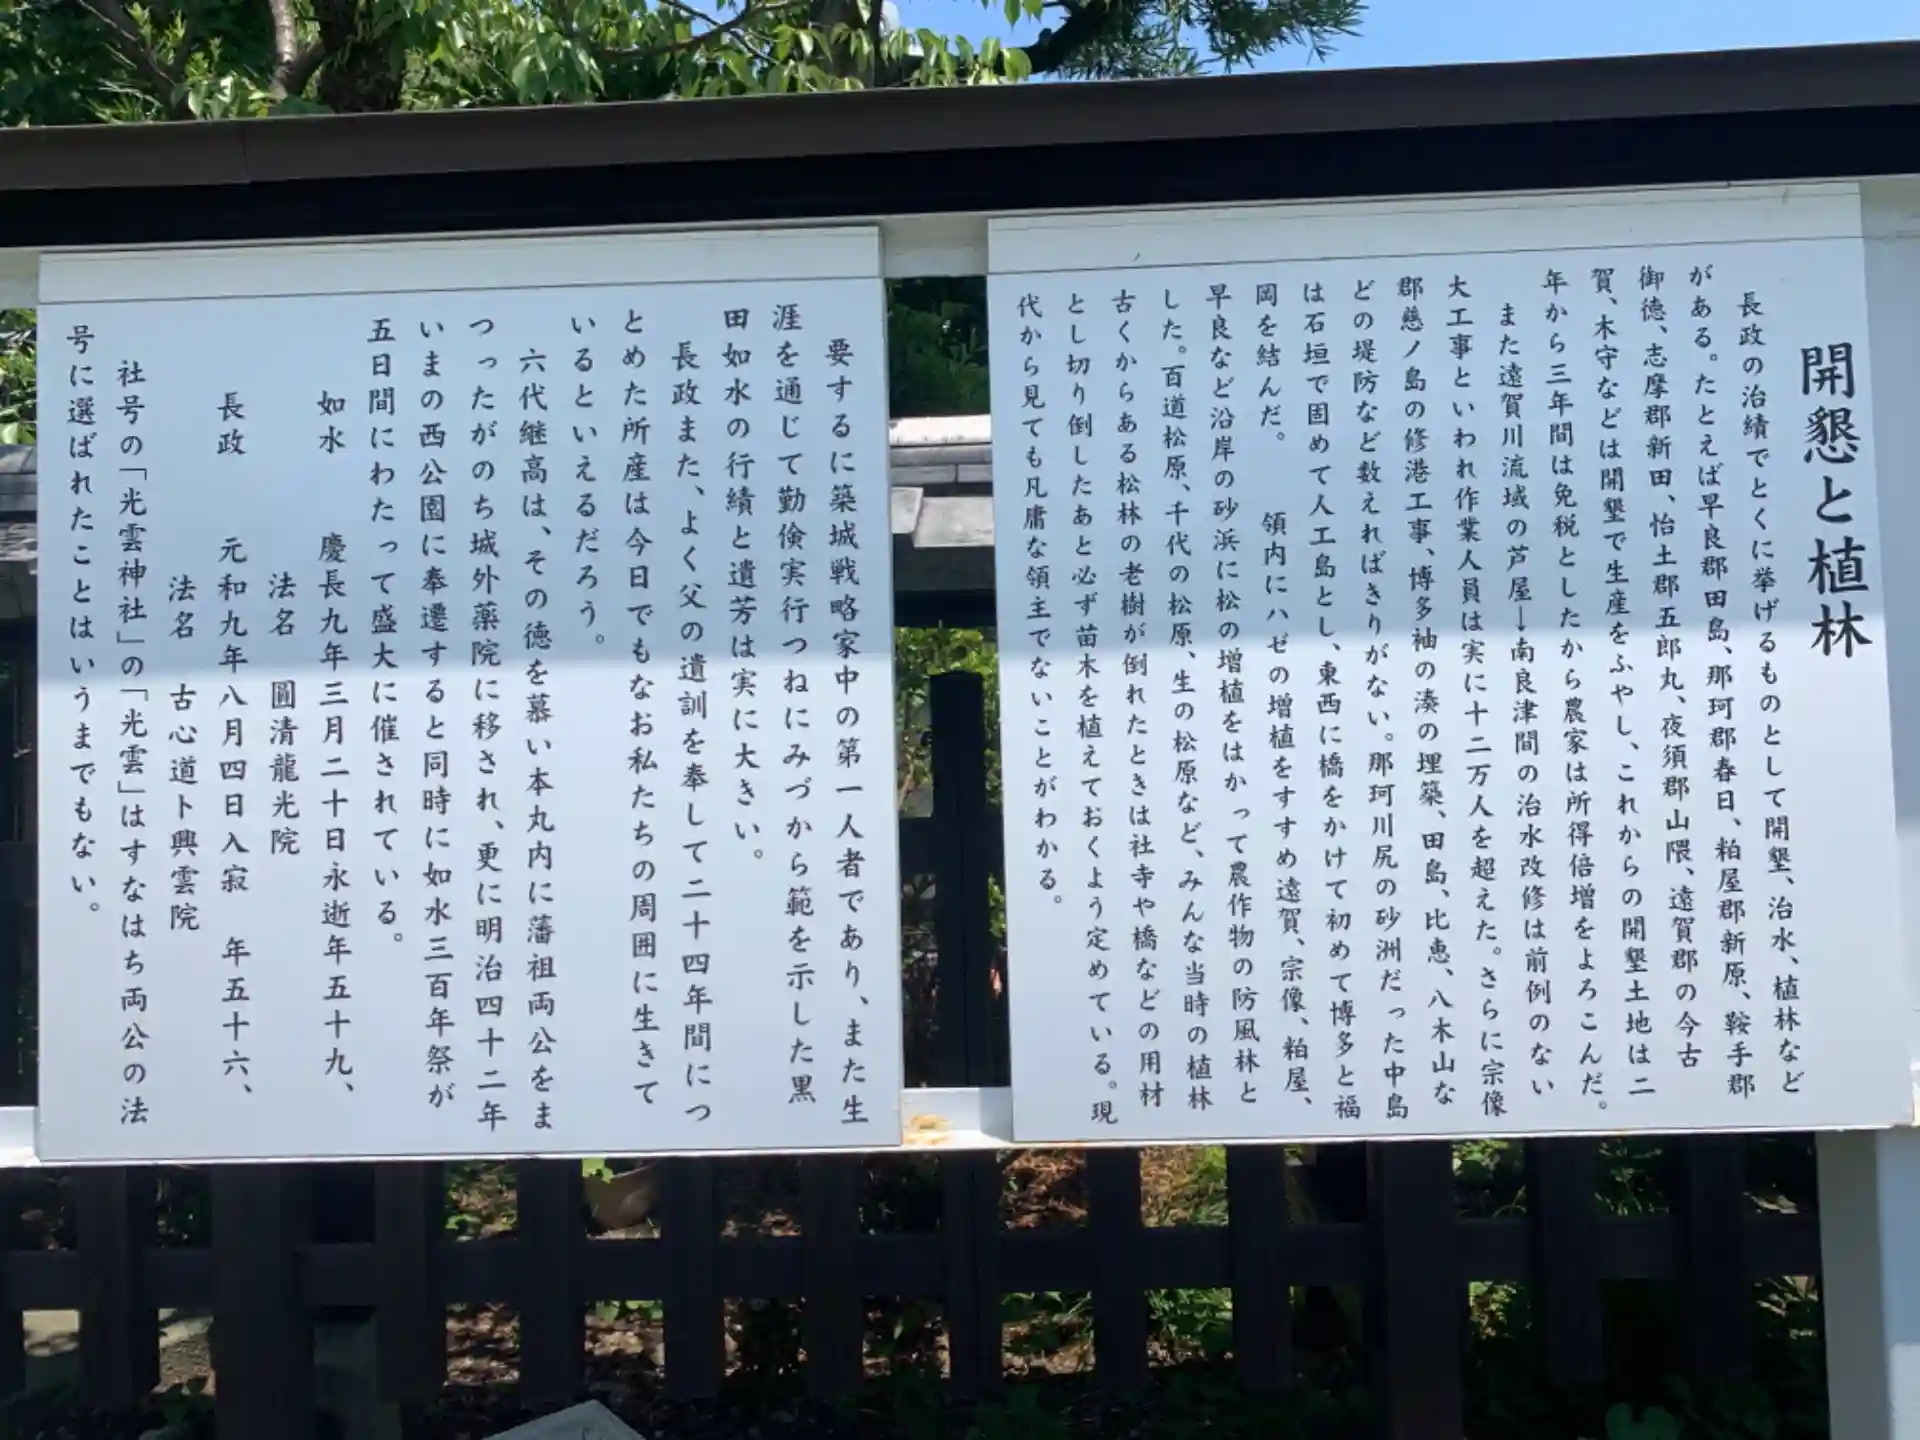 開懇と植林
長政の治績でとくに挙げるものとして開墾、治水、植林など
がある。たとえば早良郡田島、那珂郡春日、粕屋郡新原、鞍手郡
御徳、志摩郡新田、怡土郡五郎丸、夜須郡山隈、遠賀郡の今古
賀、木守などは開墾で生産をふやし、これからの開墾土地は二
年から三年間は免税としたから農家は所得倍増をよろこんだ。
また遠賀川流域の芦屋ー南良津間の治水改修は前例のない
大工事といわれ作業人員は実に十二万人を超えた。さらに宗像
郡慈ノ島の修港工事、博多袖の湊の埋築、田島、比恵、八木山な
どの堤防など数えればきりがない。那珂川尻の砂洲だった中島
は石垣で固めて人工島とし、東西に橋をかけて初めて博多と福
岡を結んだ。　領内にハゼの増植をすすめ遠賀、宗像、粕屋、
早良など沿岸の砂浜に松の増植をはかって農作物の防風林と
した。百道松原、千代の松原、生の松原など、みんな当時の植林
古くからある松林の老樹が倒れたときは社寺や橋などの用材
とし切り倒したあと必ず苗木を植えておくよう定めている。現
代から見ても凡庸な領主でないことがわかる。
要するに築城戦略家中の第一人者であり、また生
涯を通じて勤倹実行つねにみづから範を示した黒
田如水の行績と遺芳は実に大きい。
長政また、よく父の遺訓を奉して二十四年間につ
とめた所産は今日でもなお私たちの周囲に生きて
いるといえるだろう。
六代継高は、その徳を慕い本丸内に藩祖両公をま
つったがのち城外薬院に移され、更に明治四十二年
いまの西公園に奉遷すると同時に如水三百年祭が
五日間にわたって盛大に催されている。
如水　慶長九年三月二十日永逝年五十九、
法名　圓清龍光院
長政　元和九年八月四日入寂　年五十六、
法名　古心道ト興雲院
社号の「光雲神社」の「光雲」はすなはち両公の法
号に選ばれたことはいうまでもない。